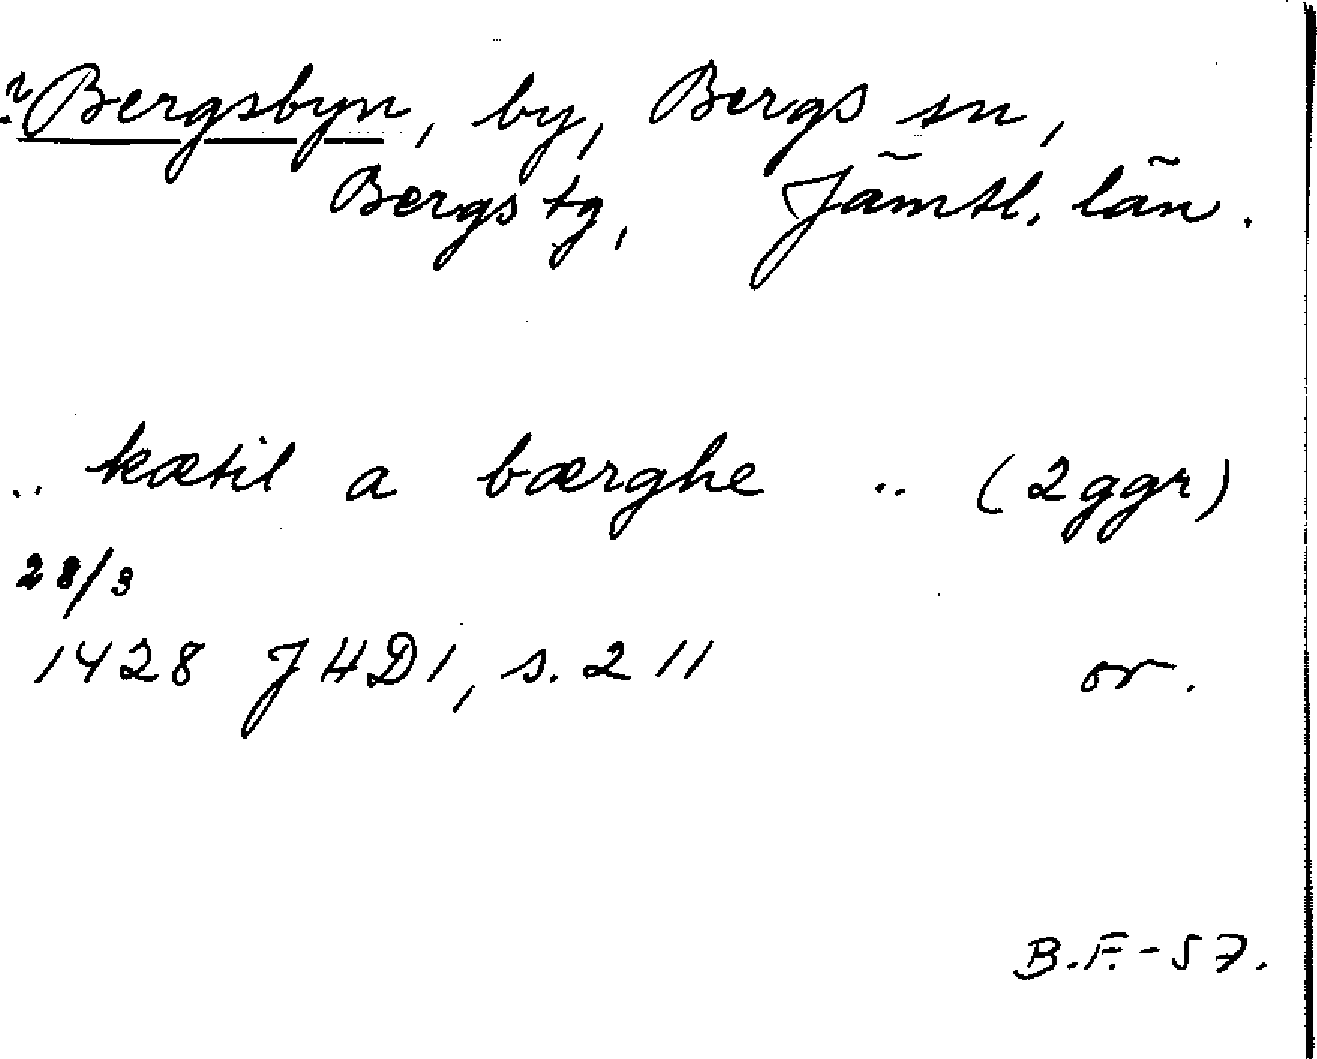 ?Bergsbyn, by, Bergs sn,
Bergs tg, Jämtl. län.
.. kætil a bærghe .. (2ggr)
28/3
1428 JHD1, s. 211 or.
B.F.-57.